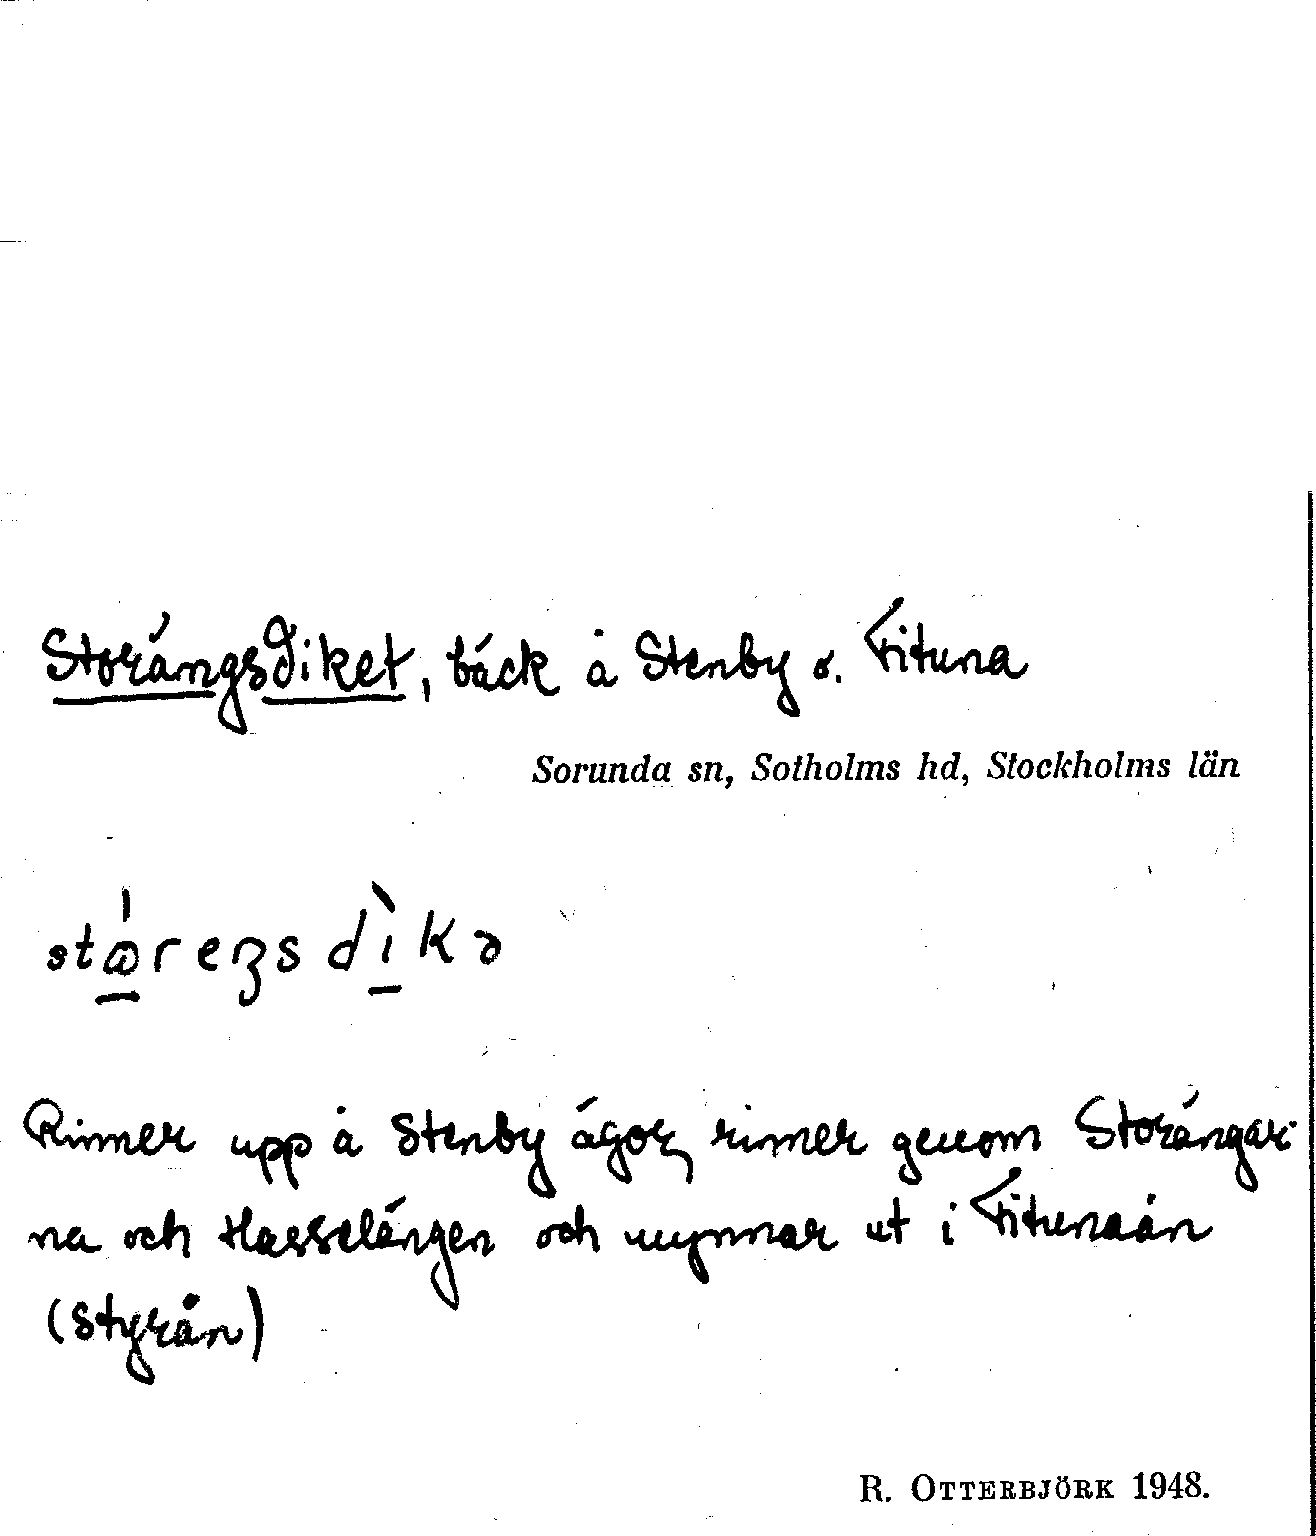 Storängsdiket, bäck å Stenby o. Fituna
Sorunda sn, Sotholms hd, Stockholms län
Rinner upp å Stenby ägor, rinner genom Storängar-
na och Hasselängen och mynnar ut i Fitunaån
(Styrån)
R. OTTERBJÖRK 1948.